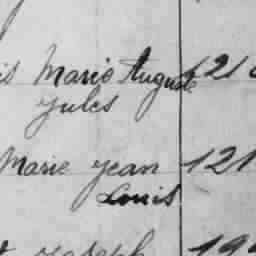 is Marie Auguste 121
Jules
Marie Jean 121
Louis
Joseph 19